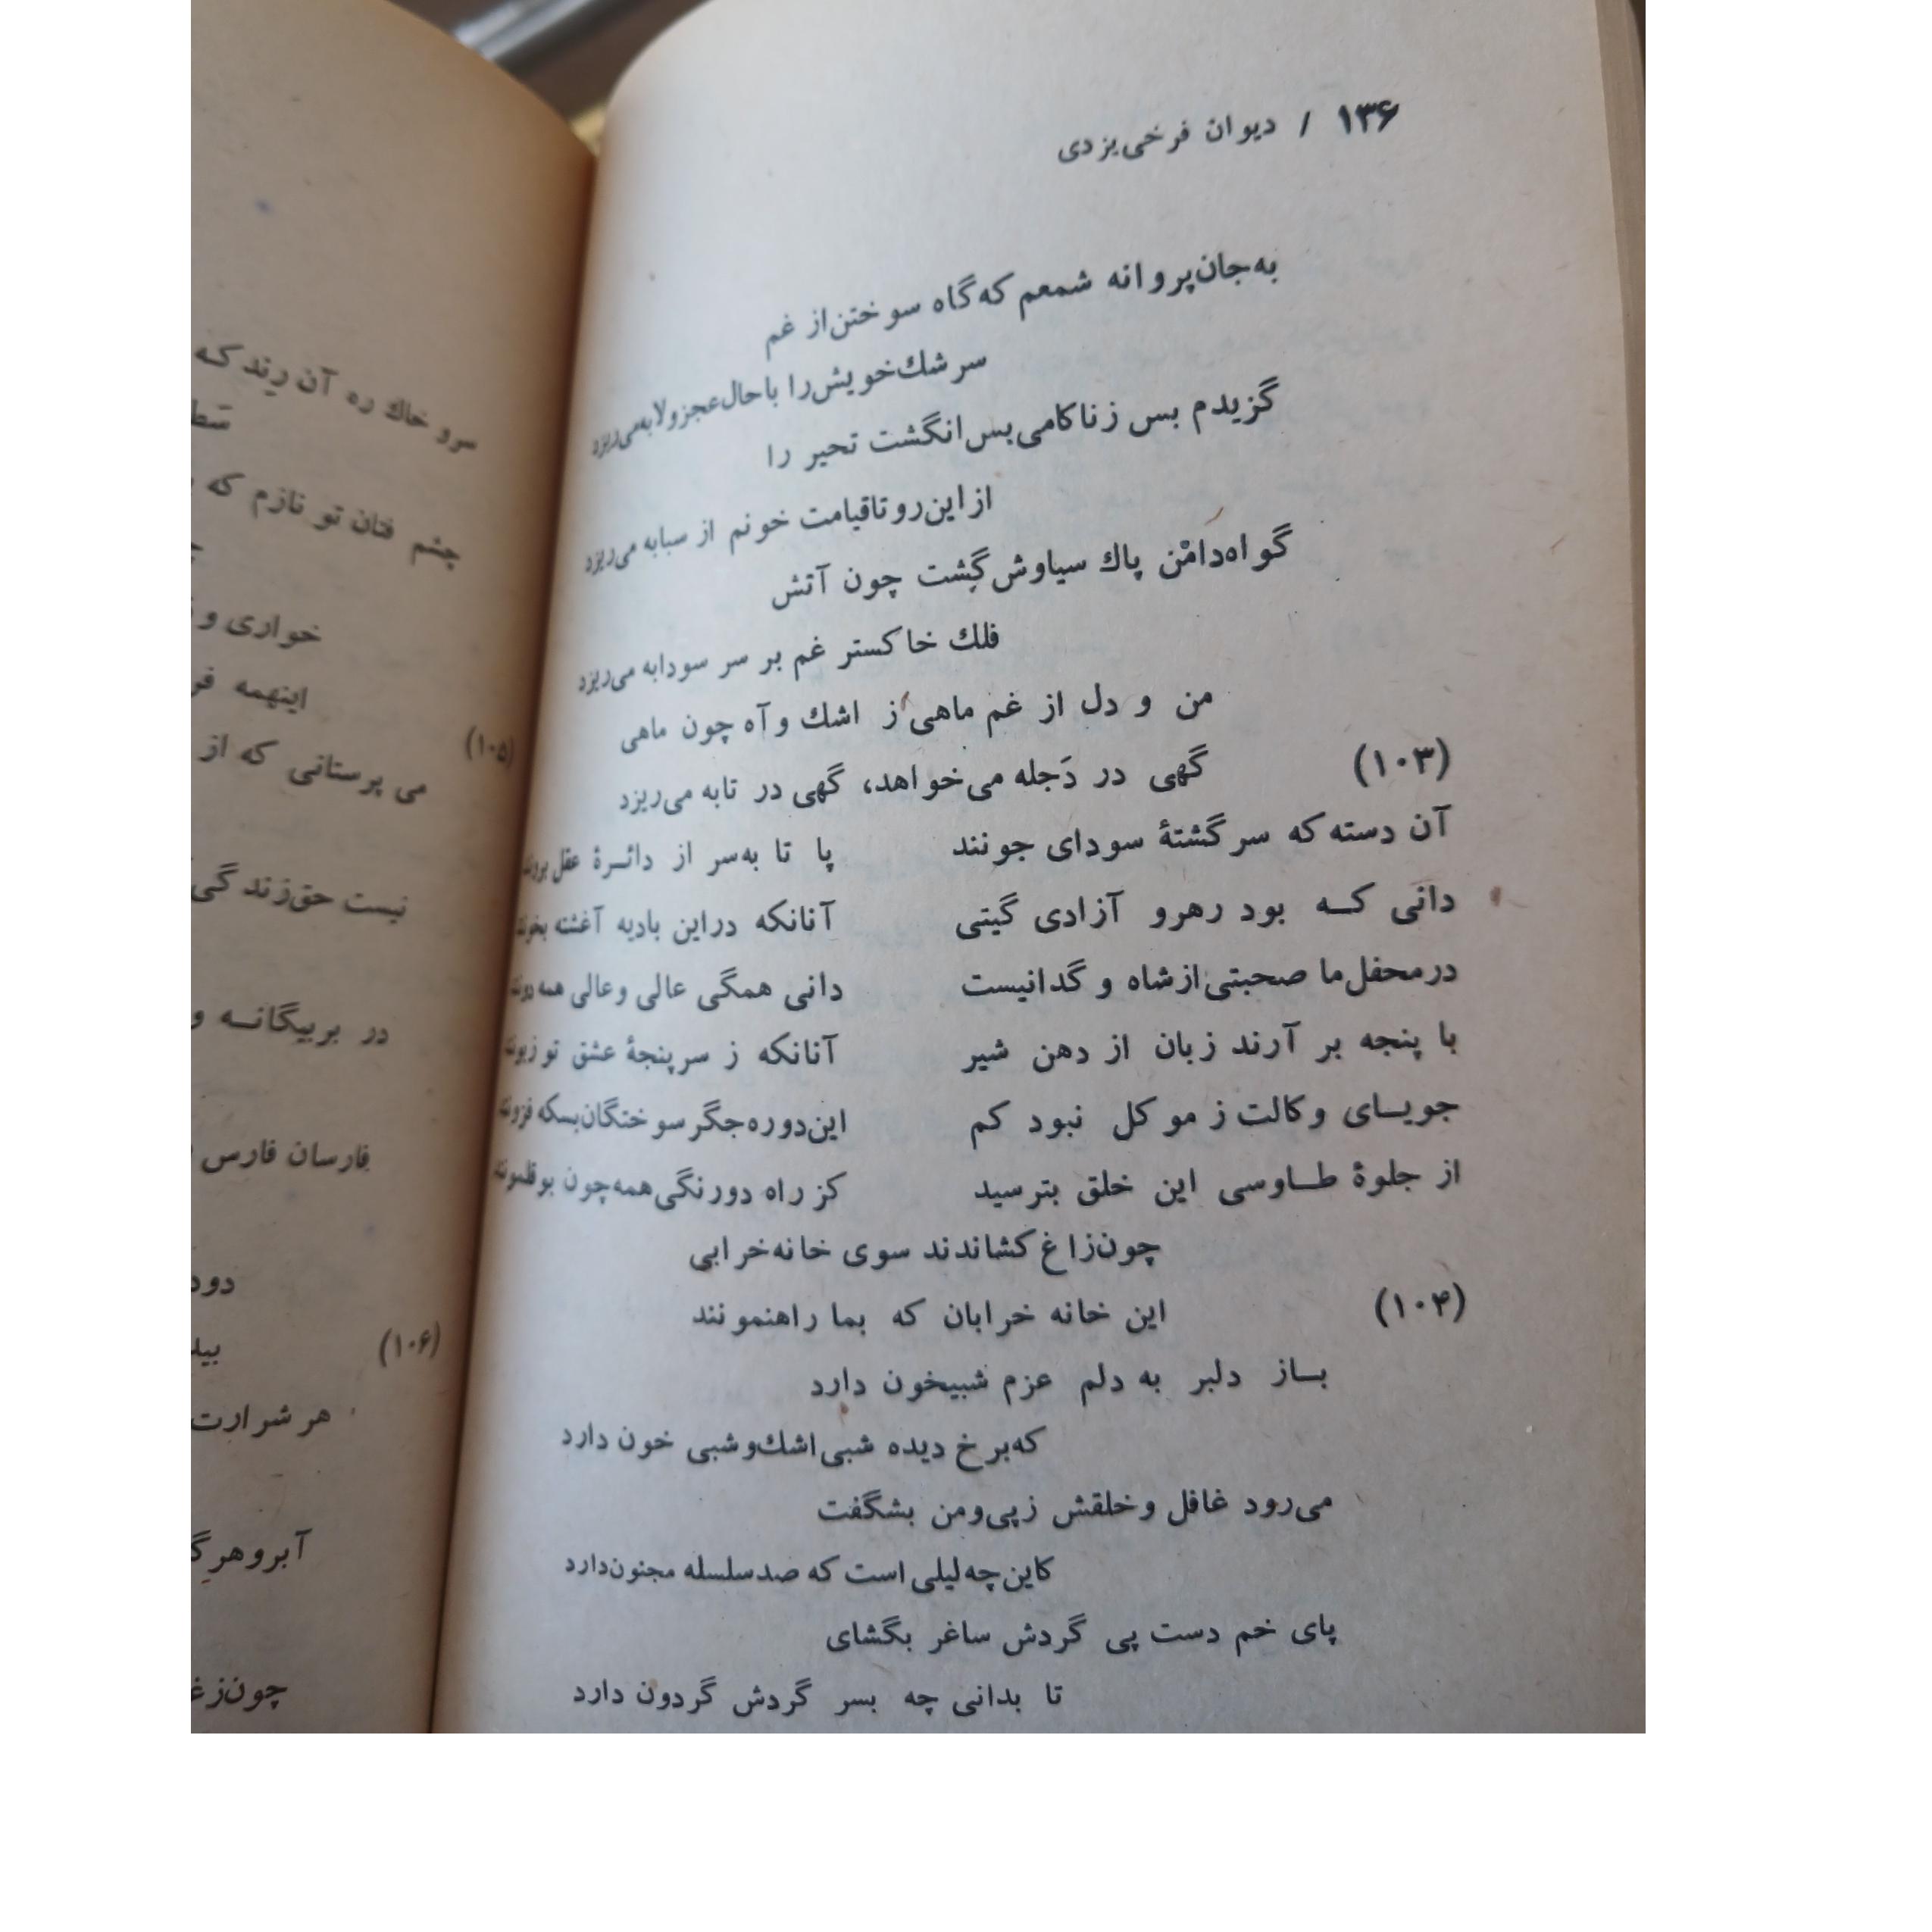 ۱۳۶ / دیوان فرخی‌یزدی
به‌جان‌پروانه شمعم که‌گاه سوختن‌از غم
سرشك‌خویش‌را باحال‌عجزولابه‌می‌ریزد
گزیدم بس زناکامی‌بس‌انگشت تحیر را
ازاین‌روتاقیامت خونم از سبابه می‌ریزد
گواه‌دامْن پاك سیاوش‌گشت چون آتش
فلك خاکستر غم بر سر سودابه می‌ریزد
من و دل از غم ماهی ز اشك وآه چون ماهی
(۱۰۳)
گهی در دَجله می‌خواهد، گهی در تابه می‌ریزد
آن دسته که سرگشتهٔ سودای جونند پا تا به‌سر از دائـرهٔ عقل برونند
دانی کـه بود رهرو آزادی گیتی آنانکه دراین بادیه آغشته بخونند
درمحفل‌ما صحبتی‌ازشاه و گدانیست دانی همگی عالی وعالی همه دونند
با پنجه بر آرند زبان از دهن شیر آنانکه ز سرپنجهٔ عشق تو زبونند
جویـای وکالت ز موکل نبود کم این‌دوره‌جگرسوختگان‌بسکه فزونند
از جلوهٔ طـاوسی این خلق بترسید کز راه دورنگی‌همه‌چون بوقلمونند
چون‌زاغ‌کشاندند سوی خانه‌خرابی
این خانه خرابان که بما راهنمونند
(۱۰۴)
بـاز دلبر به دلم عزم شبیخون دارد
که‌برخ دیده شبی‌اشك‌وشبی خون دارد
می‌رود غافل وخلقش زپی‌ومن بشگفت
کاین‌چه‌لیلی‌است که صدسلسله مجنون‌دارد
پای خم دست پی گردش ساغر بگشای
تا بدانی چه بسر گردش گردون دارد
سرو خاك ره آن رند که
چشم فتان تو نازم که
خواری و
اینهمه
(۱۰۵)
می پرستانی که از
نیست حق‌زندگی
در بربیگانـه و
فارسان فارس
(۱۰۶)
هر شرارت